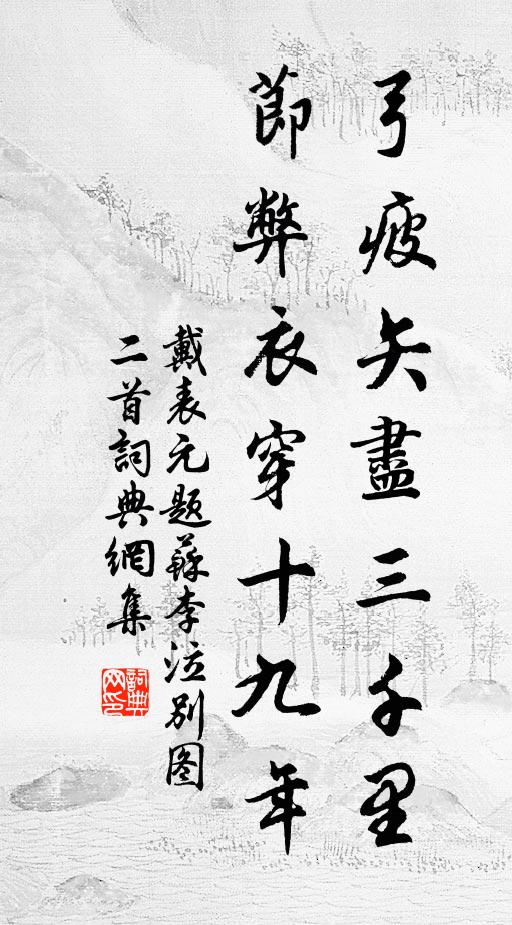 弓疲矢盡三千里
節弊衣穿十九年
戴表元题蘇李泣别图
二首詞典網集
詞典网印